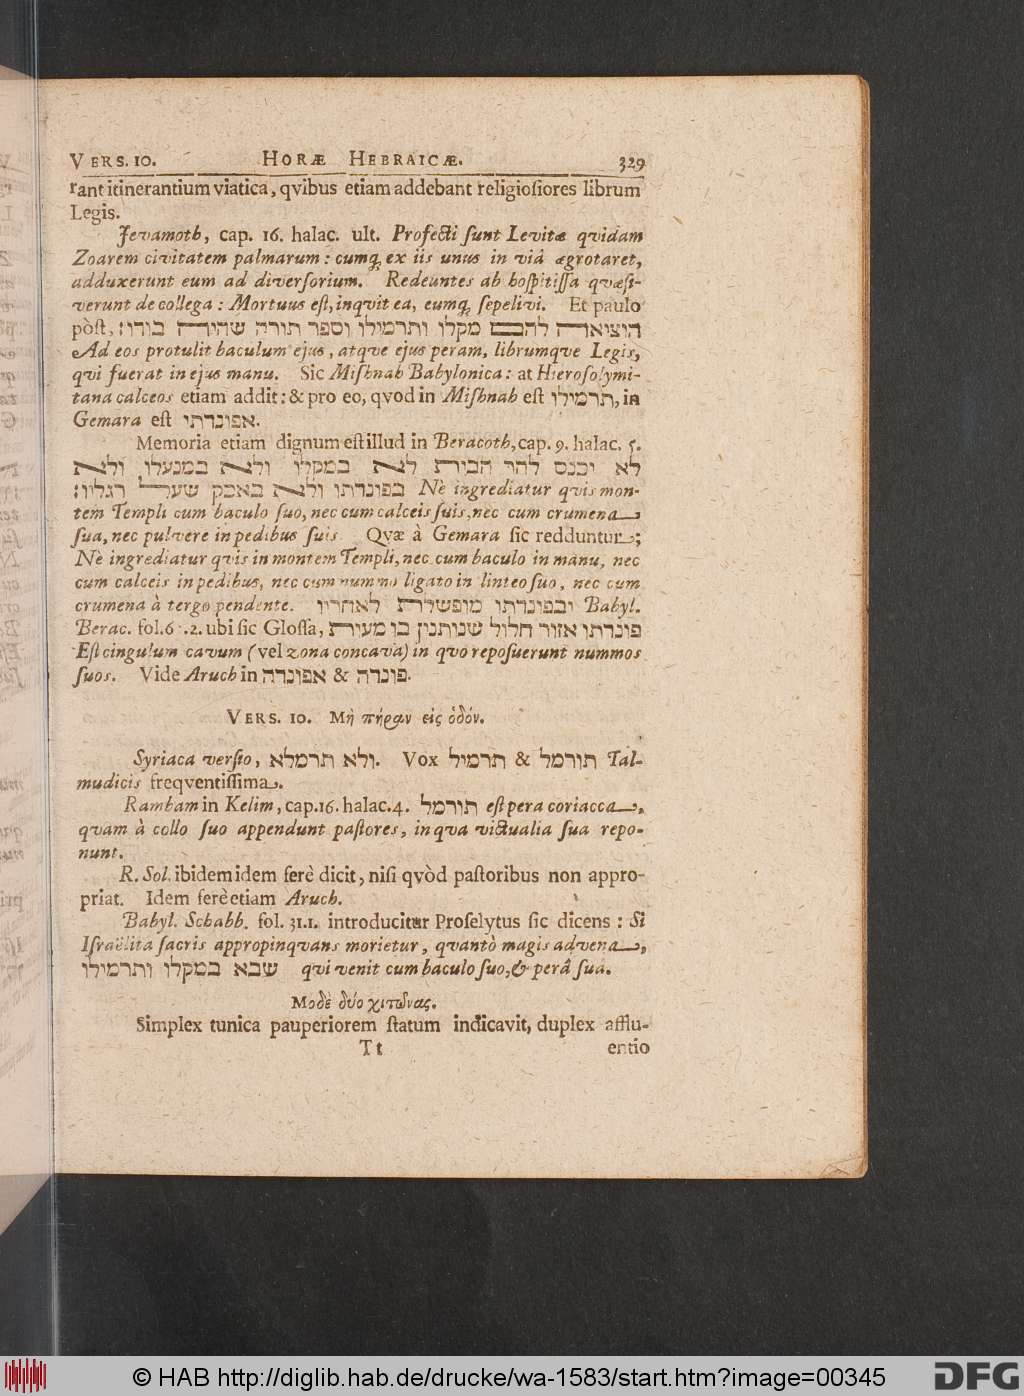 VERS. 10. HORÆ HEBRAICÆ. 329
rant itinerantium viatica, qvibus etiam addebant religioſiores librum
Legis.
Jevamoth, cap. 16. halac. ult. Profecti ſunt Levitæ qvidam
Zoarem civitatem palmarum: cumq; ex iis unus in viâ ægrotaret,
adduxerunt eum ad diverſorium. Redeuntes ab hoſpitiſſa qvæſi-
verunt de collega: Mortuus eſt, inqvit ea, eumq; ſepelivi. Et paulo
pòſt, הוציאה להם מקלו ותרמילו וספר תורה שהיה בידו:
Ad eos protulit baculum ejus, atqve ejus peram, librumqve Legis,
qvi fuerat in ejus manu. Sic Miſhnah Babylonica: at Hieroſolymi-
tana calceos etiam addit: & pro eo, qvod in Miſhnah eſt תרמילו, in
Gemara eſt אפונדתי.
Memoria etiam dignum eſt illud in Beracoth, cap. 9. halac. 5.
לא יכנס להר הבית לא במקלו ולא במנעלו ולא
בפונדתו ולא באבק שעל רגליו: Nè ingrediatur qvis mon-
tem Templi cum baculo ſuo, nec cum calceis ſuis, nec cum crumena
ſua, nec pulvere in pedibus ſuis. Qvæ à Gemara ſic redduntur;
Nè ingrediatur qvis in montem Templi, nec cum baculo in manu, nec
cum calceis in pedibus, nec cum nummo ligato in linteo ſuo, nec cum
crumena à tergo pendente. ובפונדתו מופשלת לאחריו Babyl.
Berac. fol. 6 .2. ubi ſic Gloſſa, פונדתו אזור חלול שנותנין בו מעות
Eſt cingulum cavum (vel zona concava) in qvo repoſuerunt nummos
ſuos. Vide Aruch in פונדה & אפונדה.
VERS. 10. Μὴ πήραν εἰς ὁδόν.
Syriaca verſio, ולא תרמלא. Vox תורמל & תרמיל Tal-
mudicis freqventiſſima.
Rambam in Kelim, cap. 16. halac. 4. תורמל eſt pera coriacea,
qvam à collo ſuo appendunt paſtores, in qva victualia ſua repo-
nunt.
R. Sol. ibidem idem ferè dicit, niſi qvòd paſtoribus non appro-
priat. Idem ferè etiam Aruch.
Babyl. Schabb. fol. 31.1. introducitur Proſelytus ſic dicens: Si
Iſraëlita ſacris appropinqvans morietur, qvantò magis advena,
שבא במקלו ותרמילו qvi venit cum baculo ſuo, & perâ ſuâ.
Μηδὲ δύο χιτῶνας.
Simplex tunica pauperiorem ſtatum indicavit, duplex afflu-
Tt entio
© HAB http://diglib.hab.de/drucke/wa-1583/start.htm?image=00345
DFG